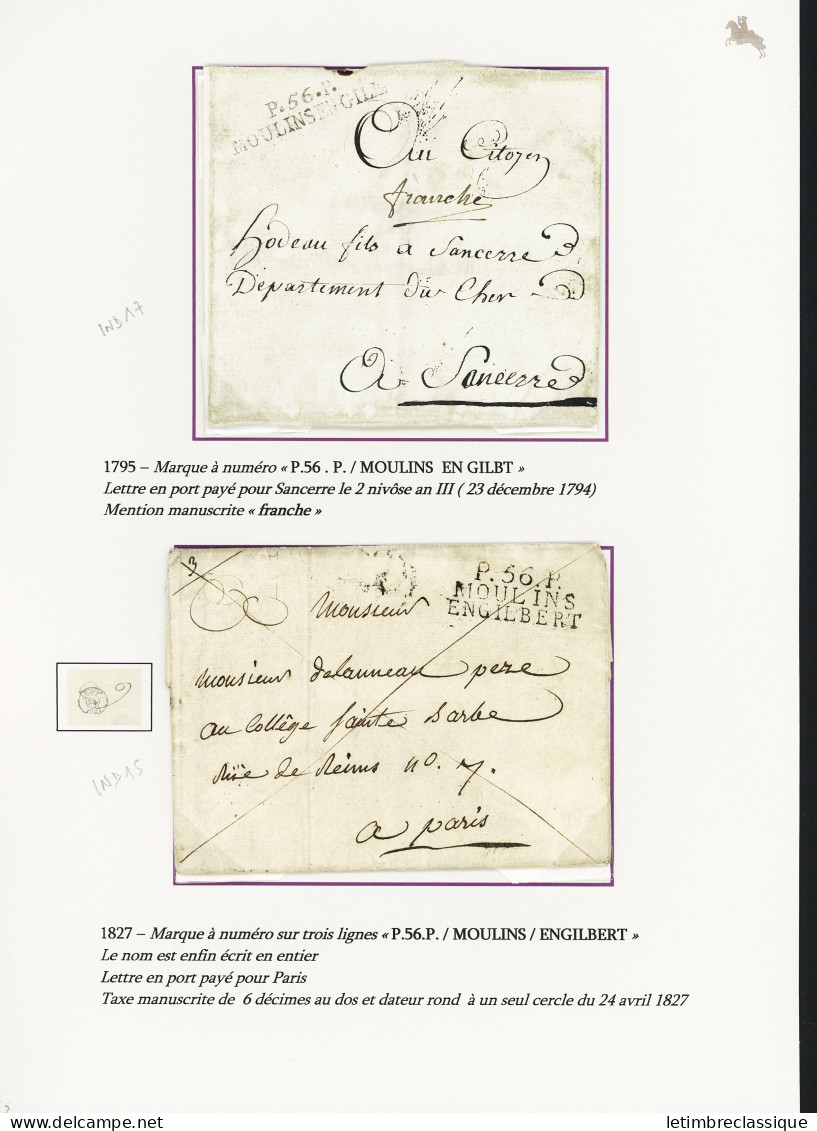 P.56.P.
MOULINSENGILB
Au Citoyen
franche
hodeau fils a Sancerre
Département du Cher
A Sancerre
IND17
1795 – Marque à numéro « P.56 . P. / MOULINS EN GILBT »
Lettre en port payé pour Sancerre le 2 nivôse an III ( 23 décembre 1794)
Mention manuscrite « franche »
3
P.56.P.
MOULINS
ENGILBERT
Monsieur
Monsieur delanneau pere
au Collège Sainte barbe
Rüe de Reims n°. 7.
a paris
IND15
1827 – Marque à numéro sur trois lignes « P.56.P. / MOULINS / ENGILBERT »
Le nom est enfin écrit en entier
Lettre en port payé pour Paris
Taxe manuscrite de 6 décimes au dos et dateur rond à un seul cercle du 24 avril 1827
delcampe.net
letimbreclassique